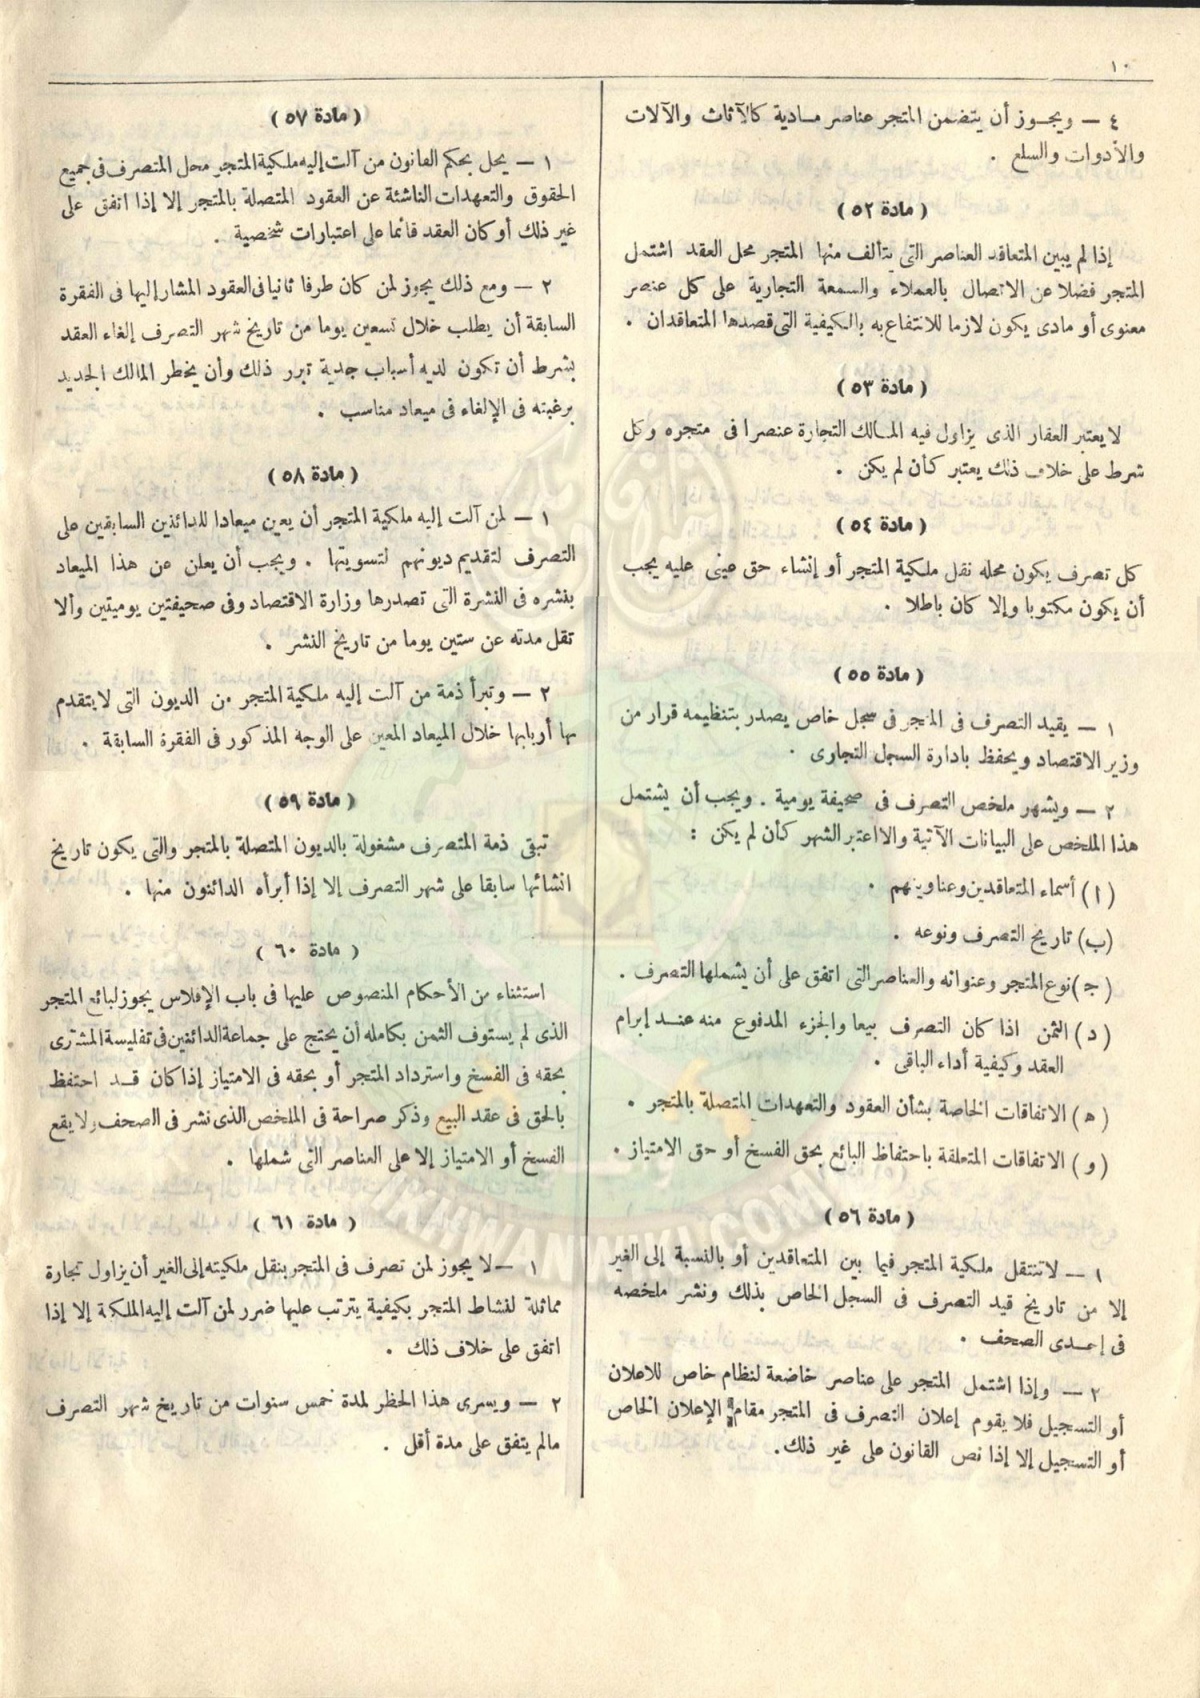 ١٠
٤ — ويجوز أن يتضمن المتجر عناصر مادية كالآثاث والآلات
والأدوات والسلع .
( مادة ٥٢ )
إذا لم يبين المتعاقد العناصر التى يتألف منها المتجر محل العقد اشتمل
المتجر فضلا عن الاتصال بالعملاء والسمعة التجارية على كل عنصر
معنوى أو مادى يكون لازما للانتفاع به بالكيفية التى قصدها المتعاقدان .
( مادة ٥٣ )
لا يعتبر العقار الذى يزاول فيه المالك التجارة عنصرا فى متجره وكل
شرط على خلاف ذلك يعتبر كأن لم يكن .
( مادة ٥٤ )
كل تصرف يكون محله نقل ملكية المتجر أو إنشاء حق عينى عليه يجب
أن يكون مكتوبا وإلا كان باطلا .
( مادة ٥٥ )
١ — يقيد التصرف فى المتجر فى سجل خاص يصدر بتنظيمه قرار من
وزير الاقتصاد ويحفظ بادارة السجل التجارى .
٢ — ويشهر ملخص التصرف فى صحيفة يومية . ويجب أن يشتمل
هذا الملخص على البيانات الآتية والا اعتبر الشهر كأن لم يكن :
( ا ) أسماء المتعاقدين وعناوينهم .
(ب) تاريخ التصرف ونوعه .
( ج ) نوع المتجر وعنوانه والعناصر التى اتفق على أن يشملها التصرف .
( د ) الثمن اذا كان التصرف بيعا والجزء المدفوع منه عند إبرام
العقد وكيفية أداء الباقى .
( ه ) الاتفاقات الخاصة بشأن العقود والتعهدات المتصلة بالمتجر .
( و ) الاتفاقات المتعلقة باحتفاظ البائع بحق الفسخ أو حق الامتياز .
( مادة ٥٦ )
١ — لا تنتقل ملكية المتجر فيما بين المتعاقدين أو بالنسبة إلى الغير
إلا من تاريخ قيد التصرف فى السجل الخاص بذلك ونشر ملخصه
فى إحدى الصحف .
٢ — وإذا اشتمل المتجر على عناصر خاضعة لنظام خاص للاعلان
أو التسجيل فلا يقوم إعلان التصرف فى المتجر مقام الإعلان الخاص
أو التسجيل إلا إذا نص القانون على غير ذلك.
( مادة ٥٧ )
١ — يحل بحكم القانون من آلت إليه ملكية المتجر محل المتصرف فى جميع
الحقوق والتعهدات الناشئة عن العقود المتصلة بالمتجر إلا إذا اتفق على
غير ذلك أو كان العقد قائما على اعتبارات شخصية .
٢ — ومع ذلك يجوز لمن كان طرفا ثانيا فى العقود المشار إليها فى الفقرة
السابقة أن يطلب خلال تسعين يوما من تاريخ شهر التصرف إلغاء العقد
بشرط أن تكون لديه أسباب جدية تبرر ذلك وأن يخطر المالك الجديد
برغبته فى الإلغاء فى ميعاد مناسب .
( مادة ٥٨ )
١ — لمن آلت إليه ملكية المتجر أن يعين ميعادا للدائنين السابقين على
التصرف لتقديم ديونهم لتسويتها . ويجب أن يعلن عن هذا الميعاد
بنشره فى النشرة التى تصدرها وزارة الاقتصاد وفى صحيفتين يوميتين وألا
تقل مدته عن ستين يوما من تاريخ النشر .
٢ — وتبرأ ذمة من آلت إليه ملكية المتجر من الديون التى لا يتقدم
بها أربابها خلال الميعاد المعين على الوجه المذكور فى الفقرة السابقة .
( مادة ٥٩ )
تبقى ذمة المتصرف مشغولة بالديون المتصلة بالمتجر والتى يكون تاريخ
انشائها سابقا على شهر التصرف إلا إذا أبرأه الدائنون منها .
( مادة ٦٠ )
استثناء من الأحكام المنصوص عليها فى باب الإفلاس يجوز لبائع المتجر
الذى لم يستوف الثمن بكامله أن يحتج على جماعة الدائنين فى تفليسة المشترى
بحقه فى الفسخ واسترداد المتجر أو بحقه فى الامتياز إذا كان قد احتفظ
بالحق فى عقد البيع وذكر صراحة فى الملخص الذى نشر فى الصحف ولا يقع
الفسخ أو الامتياز إلا على العناصر التى شملها .
( مادة ٦١ )
١ — لا يجوز لمن تصرف فى المتجر بنقل ملكيته إلى الغير أن يزاول تجارة
مماثلة لنشاط المتجر بكيفية يترتب عليها ضرر لمن آلت إليه الملكية إلا إذا
اتفق على خلاف ذلك .
٢ — ويسرى هذا الحظر لمدة خمس سنوات من تاريخ شهر التصرف
مالم يتفق على مدة أقل .
IKHWANWIKI.COM